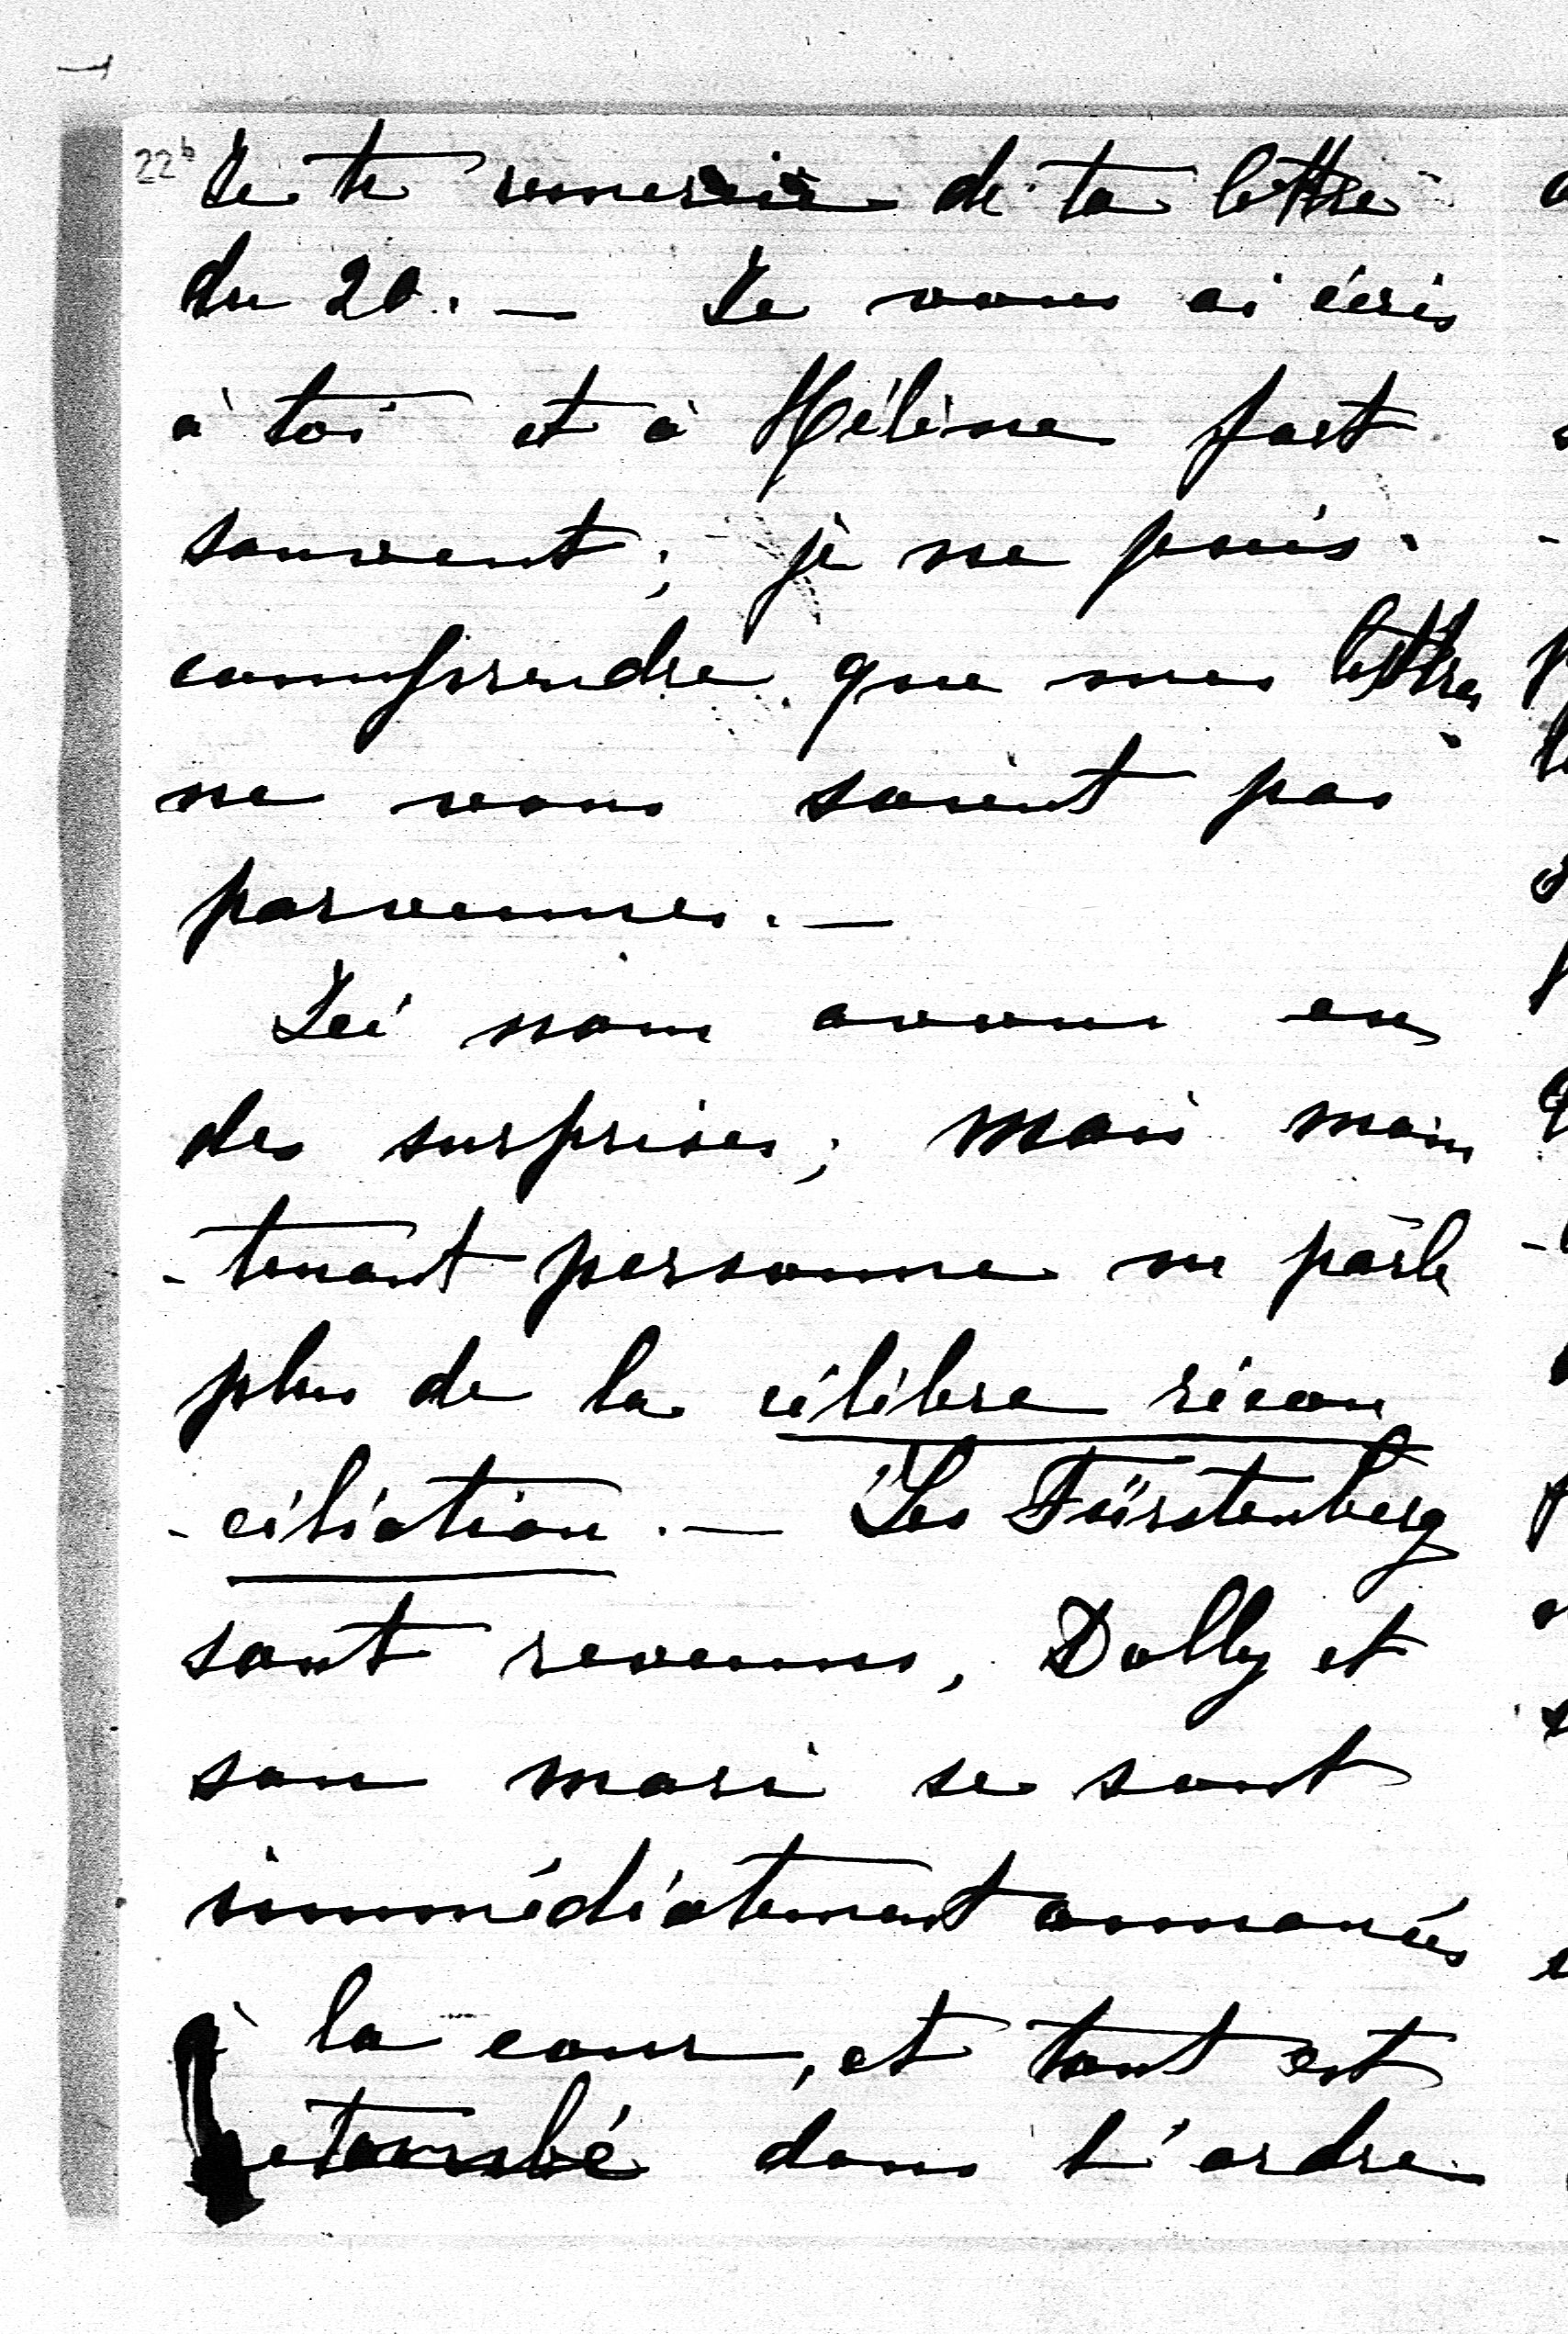 22b Je te remercie de ta lettre
du 20. — Je vous ai écris
à toi et à Hélène fort
souvent; je ne puis
comprendre que mes lettres
ne vous soient pas
parvenues. —
Ici nous avons eu
des surprises; mais main
-tenant personne ne parle
plus de la célèbre récon
-ciliation. — Les Fürstenberg
sont revenus, Dolly et
son mari se sont
immédiatement annoncés
à la cour, et tout est
retombé dans l'ordre